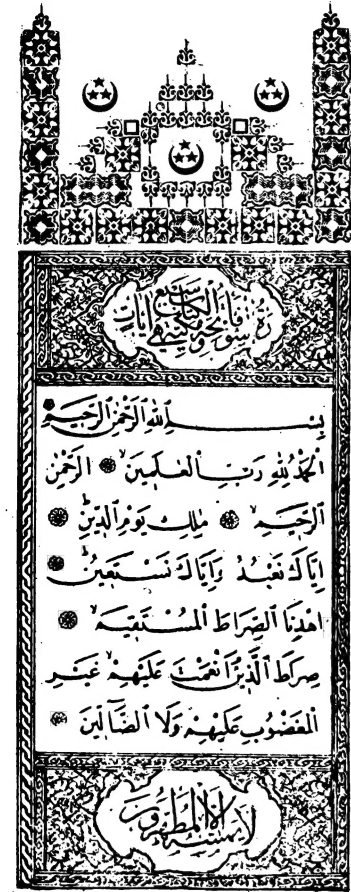 سورة فاتحة الكتاب مكية وهي سبع ايات
بِسْمِ اللهِ الرَّحْمٰنِ الرَّحِيمِ
اَلْحَمْدُ لِلهِ رَبِّ الْعٰلَمِينَ ۙ الرَّحْمٰنِ
الرَّحِيمِ ۙ مٰلِكِ يَوْمِ الدِّينِ ۗ
اِيَّاكَ نَعْبُدُ وَاِيَّاكَ نَسْتَعِينُ ۗ
اِهْدِنَا الصِّرَاطَ الْمُسْتَقِيمَ ۙ
صِرَاطَ الَّذِينَ اَنْعَمْتَ عَلَيْهِمْ ۙ غَيْرِ
الْمَغْضُوبِ عَلَيْهِمْ وَلَا الضَّآلِّينَ
لا يمسه الا المطهرون